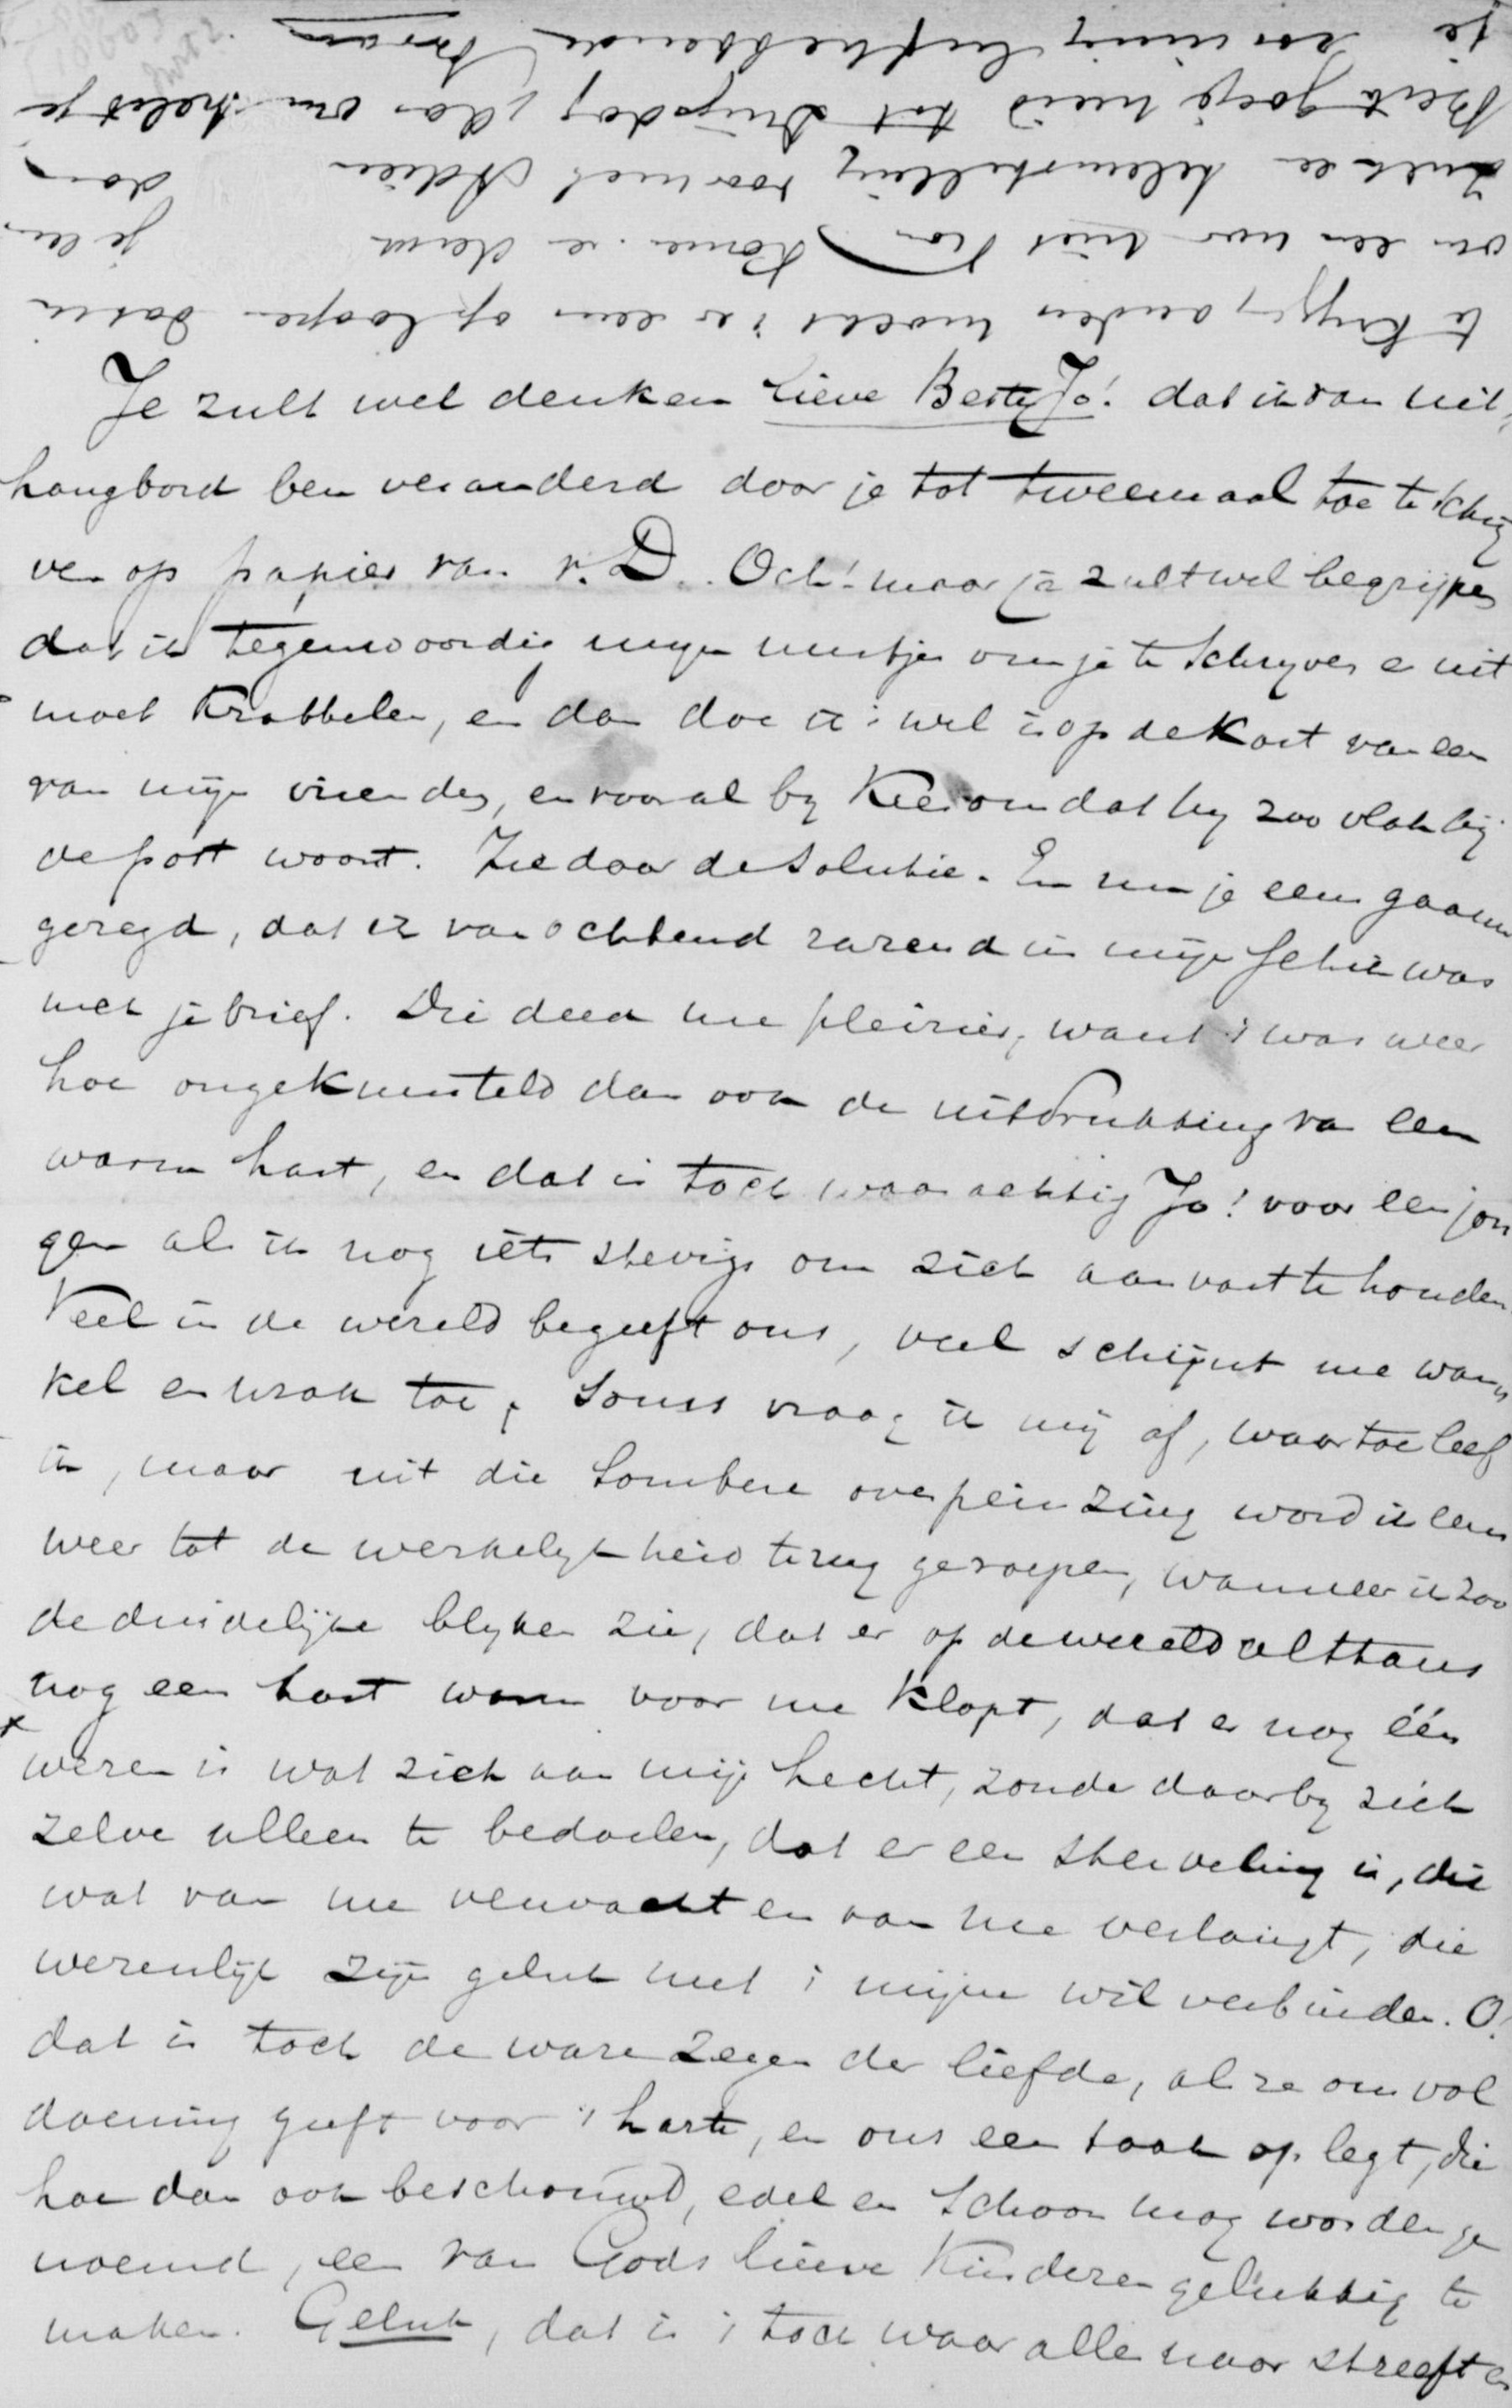 Je zult wel denken lieve Beste Jo! dat ik van uit-
hangbord ben veranderd door je tot tweemaal toe te schrij
ven op papier van v. D. Och! maar je zult wel begrijpen
dat ik tegenwoordig mijn rustjes om je te schryven er uit
moet krabbelen, en dan doe ik 't wel is op de kast van een
van mijn vrienden, en vooral by Kee omdat hy zoo vlak bij
de post woont. Zie daar de solutie. En nu je eens gaauw
gezegd, dat ik van ochtend razend in mijn schik was
met je brief. Die deed me pleizier, want 't was weer
hoe ongekunsteld dan ook de uitdrukking van een
warm hart, en dat is toch waarachtig Jo! voor een jon
gen als ik nog iets stevigs om zich aan vast te houden
Veel in de wereld begeeft ons, veel schijnt me wan
kel en wrak toe, soms vraag ik mij af, waartoe leef
ik, maar uit die sombere overpeinzing word ik eens
weer tot de werkelykheid terug geroepen, wanneer ik zoo
de duidelijke blyken zie, dat er op de wereld althans
nog een hart warm voor me klopt, dat er nog één
wezen is wat zich aan mij hecht, zonder daarby zich
zelve alleen te bedoelen, dat er een sterveling is, die
wat van me verwacht en van me verlangt, die
wezenlijk zijn geluk met 't mijne wil verbinden. O!
dat is toch de ware zegen der liefde, als ze ons vol
doening geeft voor 't harte, en ons een taak op legt, die
hoe dan ook beschouwd, edel en schoon mag worden ge
noemd, een van Gods lieve kinderen gelukkig te
maken. Geluk, dat is 't toch waar alles naar streeft en
te krijgen, anders mocht 't er eens op loopen dat ik
om een uur niet kan komen en dan je een
zult er teleurstelling van met Adieu dan
Beste goeje meid tot Dingsdag, Klaas en
je zoo innig liefhebbende Bram